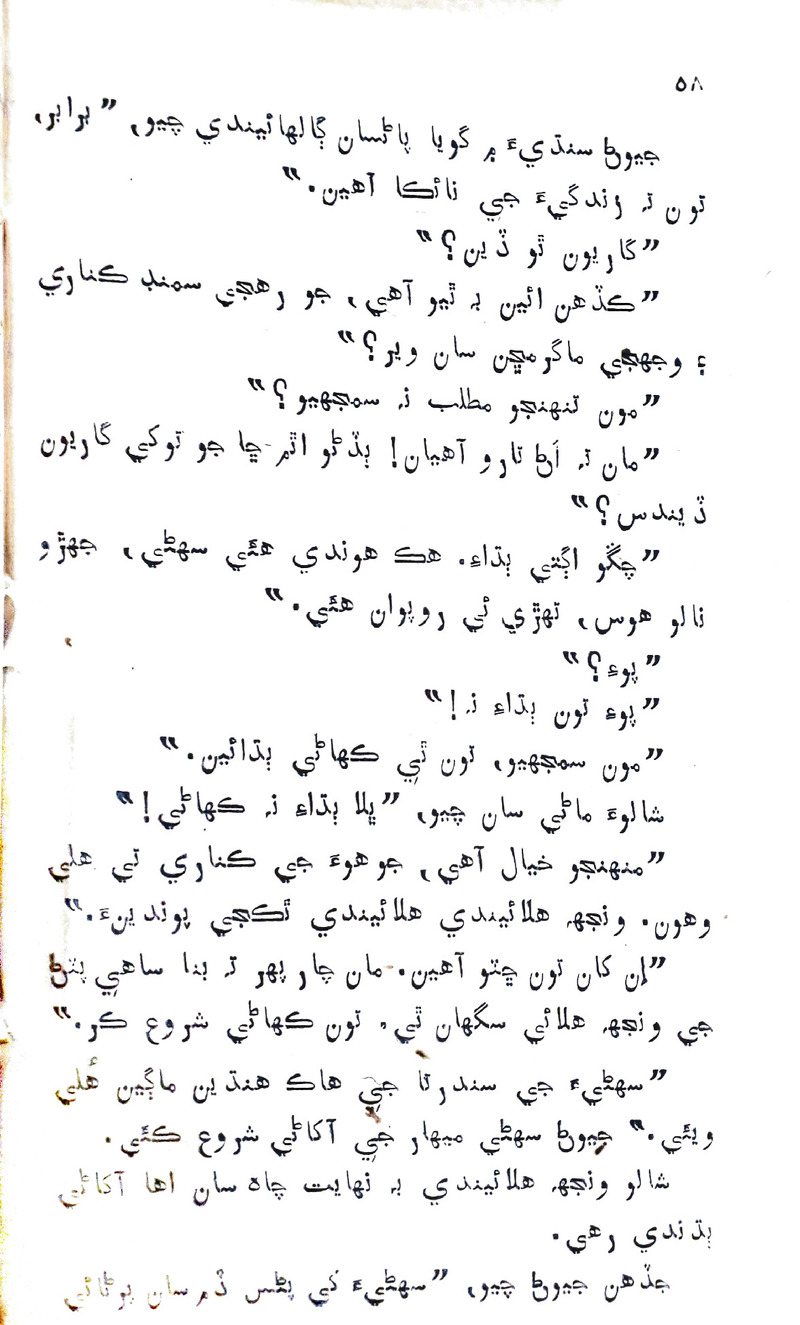 ٥٨
جيوڻ سنڌيءَ ۾ گويا پاڻسان ڳالهائيندي چيو، ”برابر،
تون تہ زندگيءَ جي نائڪا آهين.“
”گاريون ٿو ڏين؟“
”ڪڏهن ائين بہ ٿيو آهي، جو رهجي سمنڊ ڪناري
۽ وجهجي ماگرمڇن سان وير؟“
”مون تنهنجو مطلب نہ سمجهيو؟“
”مان تہ اَڻ تارو آهيان! ٻڏڻو اٿم ڇا جو توکي گاريون
ڏيندس؟“
”چڱو اڳتي ٻڌاء. هڪ هوندي هئي سهڻي، جهڙو
نالو هوس، تهڙي ئي روپوان هئي.“
”پوءِ؟“
”پوءِ تون ٻڌاءِ نہ!“
”مون سمجهيو، تون ٿي ڪهاڻي ٻڌائين.“
شالوءَ ماڻي سان چيو، ”ڀلا ٻڌاءِ نہ ڪهاڻي!“
”منهنجو خيال آهي، جوهوءَ جي ڪناري تي هلي
وهون. ونجهہ هلائيندي هلائيندي ٿڪجي پوندينءَ.“
”اِن کان تون ڇٽو آهين. مان چار پهر تہ بنا ساهي پٽڻ
جي ونجهہ هلائي سگهان ٿي. تون ڪهاڻي شروع ڪر.“
”سهڻيءَ جي سندرتا جي هاڪ هنڌين ماڳين هُلي
ويئي.“ جيوڻ سهڻي ميهار جي آکاڻي شروع ڪئي.
شالو ونجهہ هلائيندي بہ نهايت چاھ سان اها آکاڻي
ٻڌندي رهي.
جڏهن جيوڻ چيو، ”سهڻيءَ کي پڻس ڏم سان پرڻائي